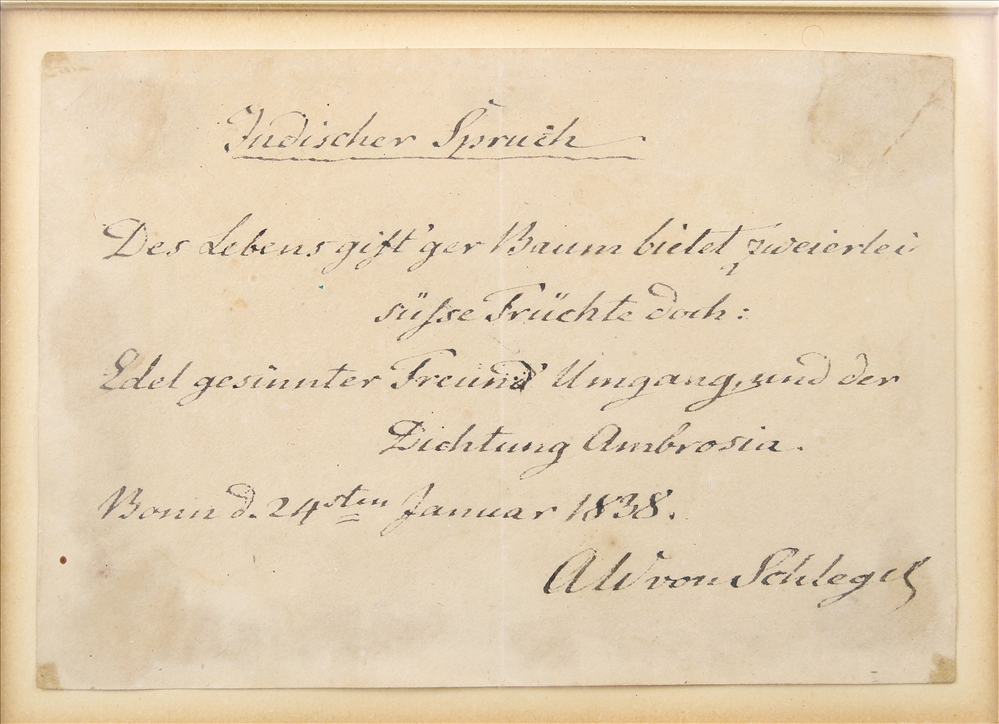 Indischer Spruch
Des Lebens gift'ger Baum bietet zweierlei
süsse Früchte doch:
Edel gesinnter Freund' Umgang, und der
Dichtung Ambrosia.
Bonn d. 24sten Januar 1838.
AW von Schlegel